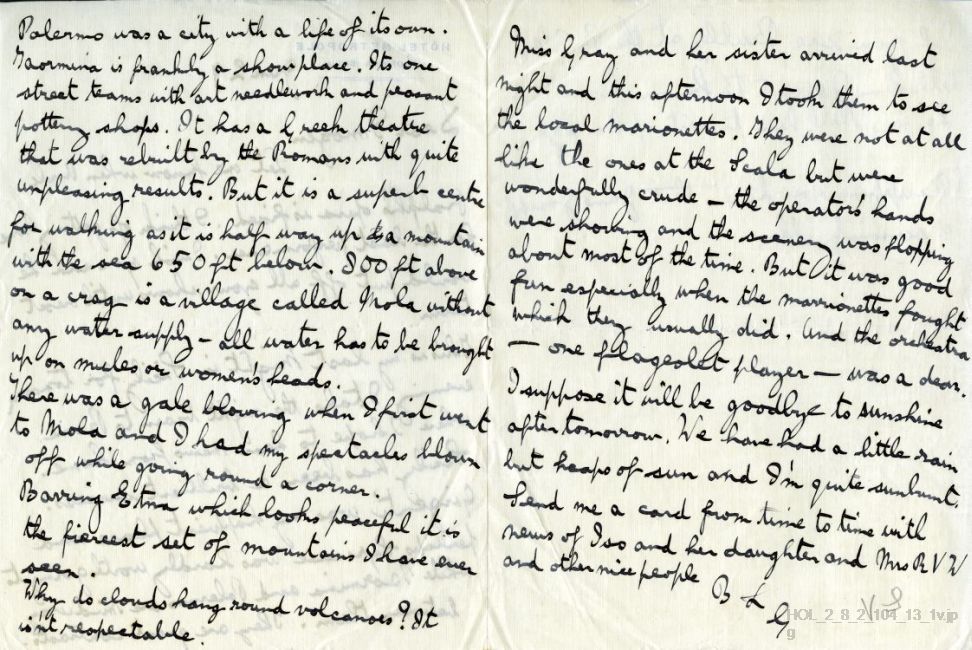 Palermo was a city with a life of its own.
Taormina is frankly a showplace. Its one
street teams with art needlework and peasant
pottery shops. It has a Greek theatre
that was rebuilt by the Romans with quite
unpleasing results. But it is a superb centre
for walking as it is half way up a mountain
with the sea 650 ft below. 800 ft above
on a crag is a village called Mola without
any water supply – all water has to be brought
up on mules or women's heads.
There was a gale blowing when I first went
to Mola and I had my spectacles blown
off while going round a corner.
Barring Etna which looks peaceful it is
the fiercest set of mountains I have ever
seen.
Why do clouds hang round volcanoes? It
isn't respectable.
Miss Gray and her sister arrived last
night and this afternoon I took them to see
the local marionettes. They were not at all
like the ones at the Scala but were
wonderfully crude – the operator's hands
were showing and the scenery was flopping
about most of the time. But it was good
fun especially when the marrionettes fought
which they usually did. And the orchestra
– one flageolet player – was a dear.
I suppose it will be goodbye to sunshine
after tomorrow. We have had a little rain
but heaps of sun and I'm quite sunburnt.
Send me a card from time to time with
news of Iso and her daughter and Mrs RVW
and other nice people
B L
G
HOL_2_8_2_104_13_1v.jp
g